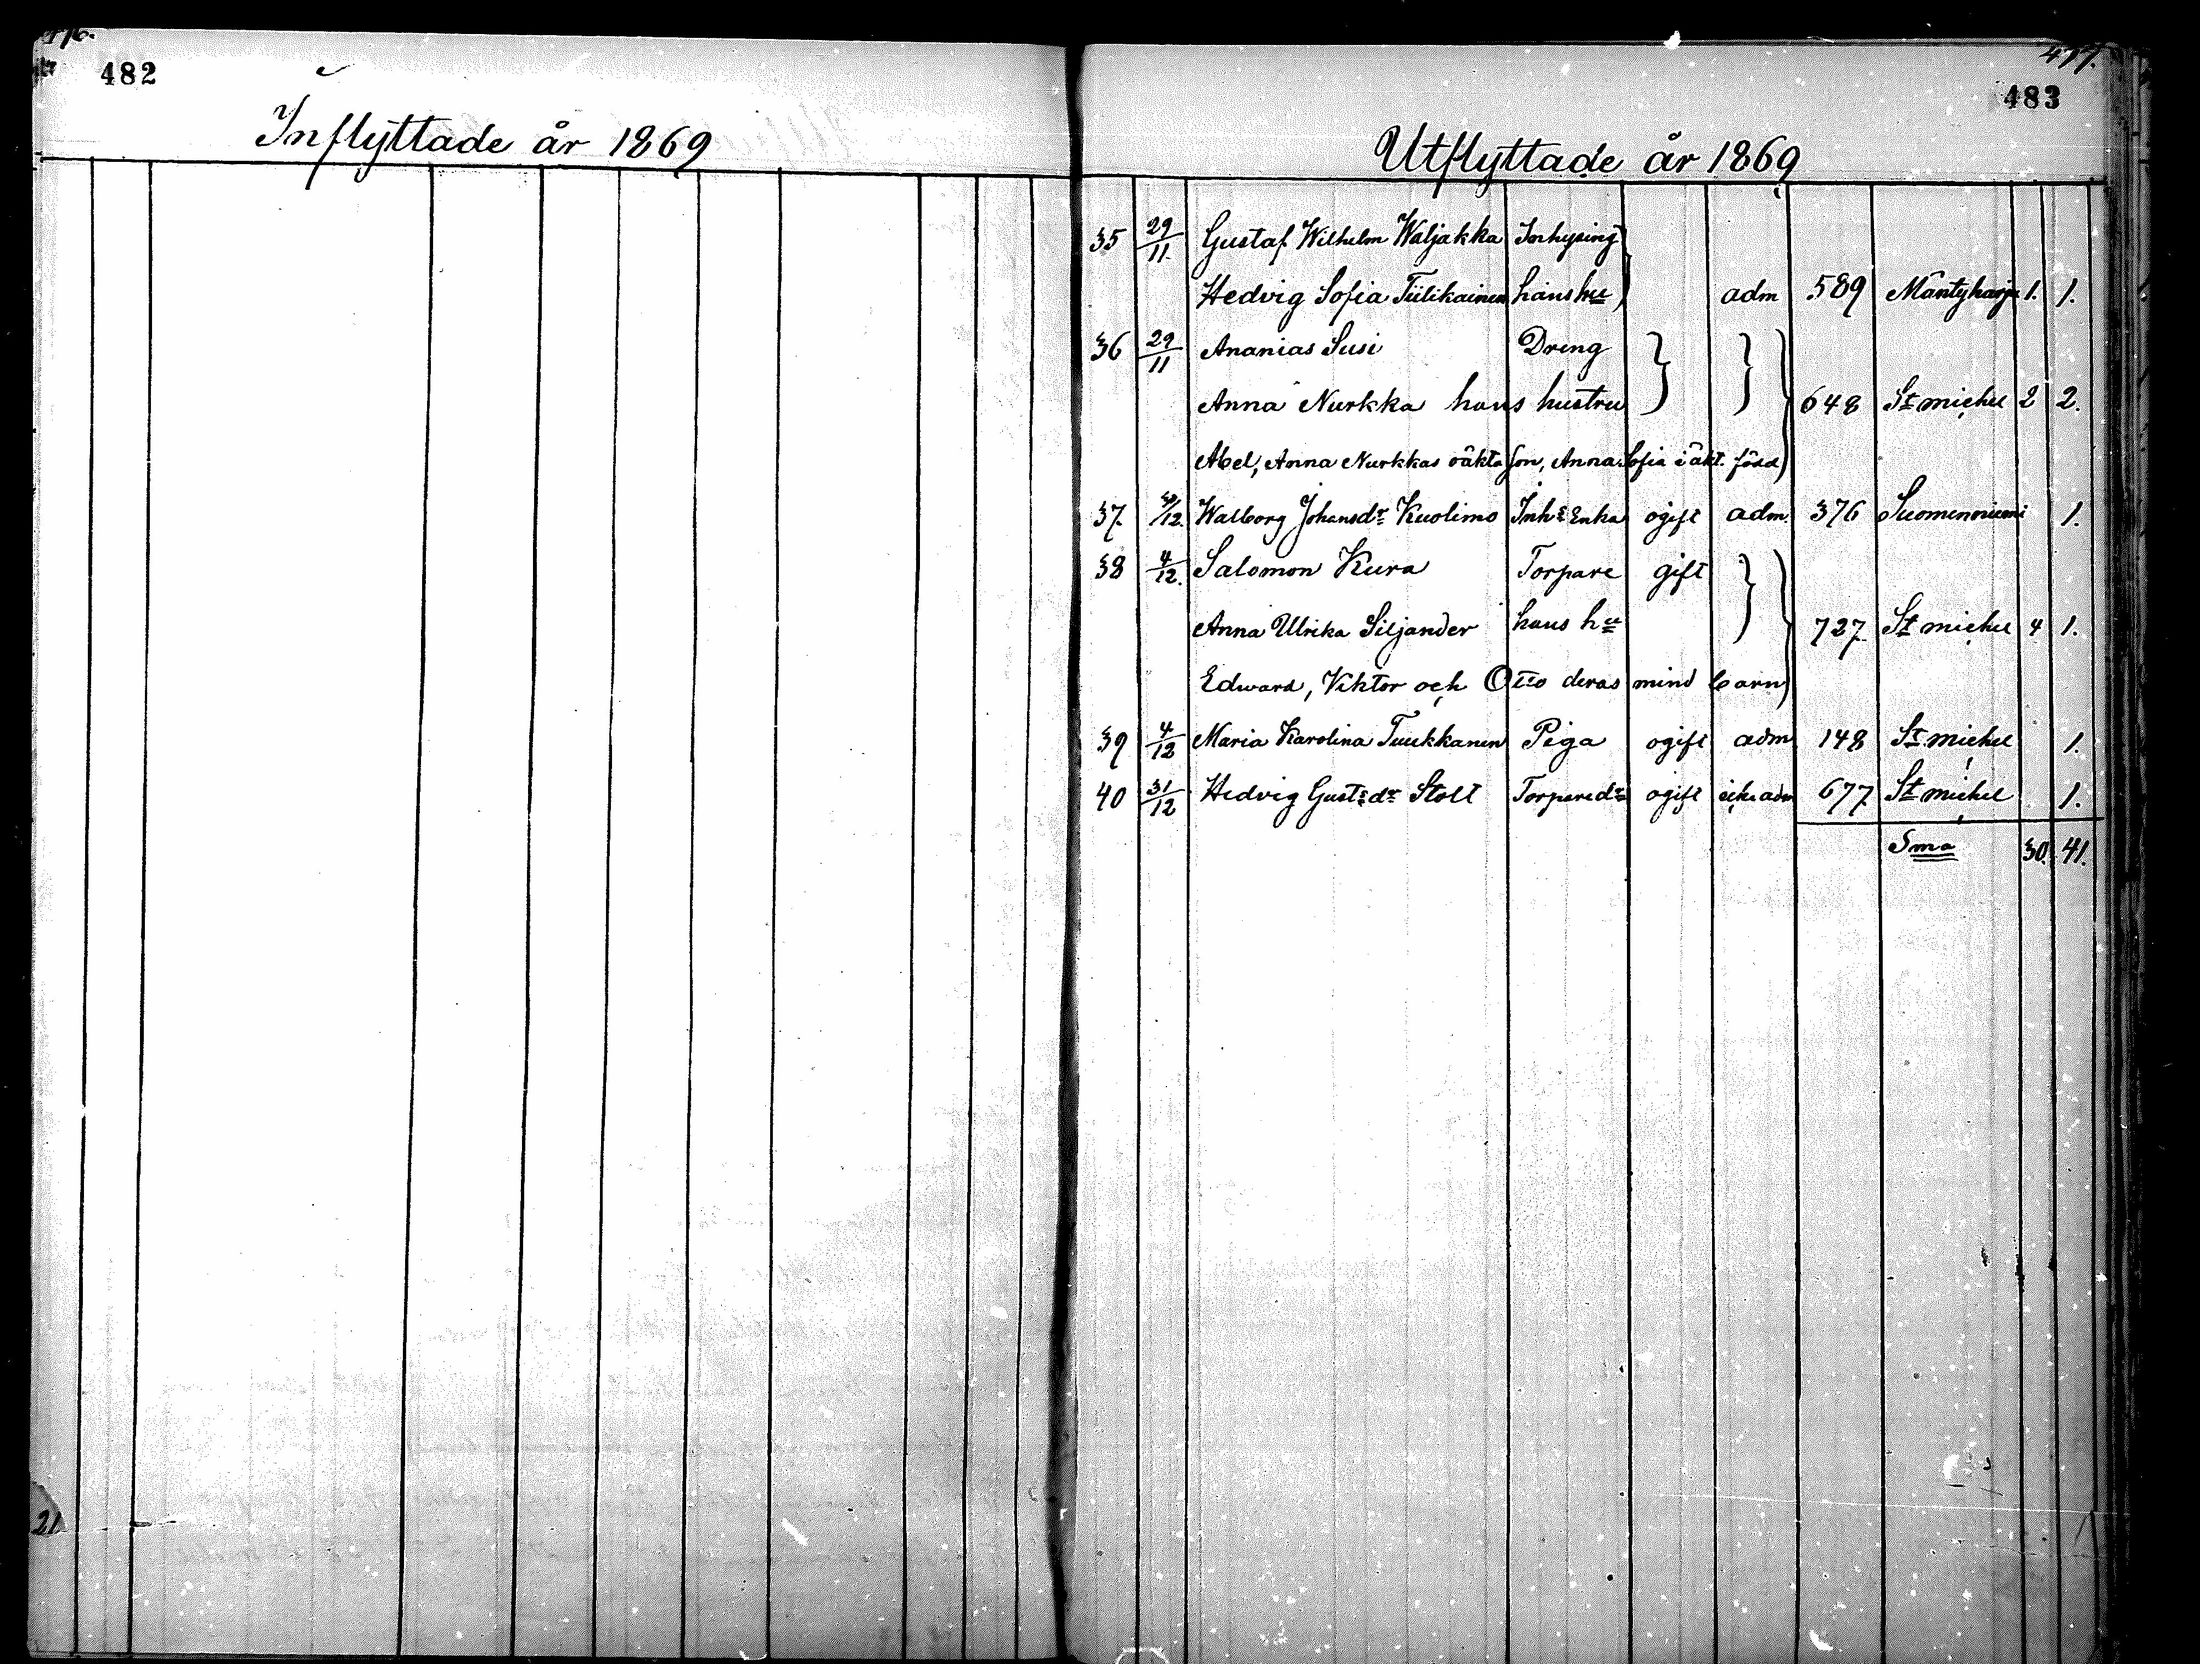 476.
482
Inflyttade år 1869
21
477.
483
Utflyttade år 1869
35 29/11. Gustaf Wilhelm Waljakka Inhysing
Hedvig Sofia Tiilikainen hans hu adm 589 Mäntyharju 1. 1.
36 29/11 Ananias Susi Dreng
Anna Nurkka hans hustru 648 St michel 2 2.
Abel, Anna Nurkkas oäkta son, Anna Sofia i äkt. född
37. /12. Walborg Johansdr Kuolimo Inhs Enka ogift adm. 376 Suomenniemi 1.
38 4/12. Salomon Kura Torpare gift
Anna Ulrika Siljander hans hu 727. St michel 4 1.
Edward, Viktor och Otto deras mind barn
39 4/12 Maria Karolina Tuukkanen Piga ogift adm 148 St michel 1.
40 31/12 Hedvig Gustsdr Stolt Torparedr ogift icke adm 677. St michel 1.
Sma 30. 41.